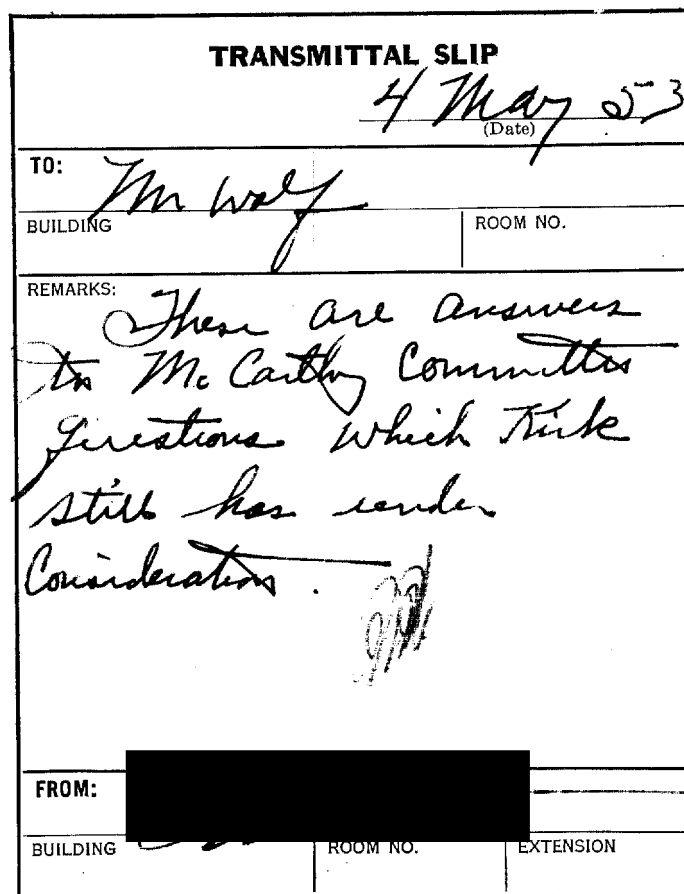 TRANSMITTAL SLIP
4 May 53
(Date)
TO:
Mr Wolf
BUILDING
ROOM NO.
REMARKS:
These are answers
to McCarthy Committee
Questions which Kirk
still has under
Consideration.
FROM:
BUILDING
ROOM NO.
EXTENSION